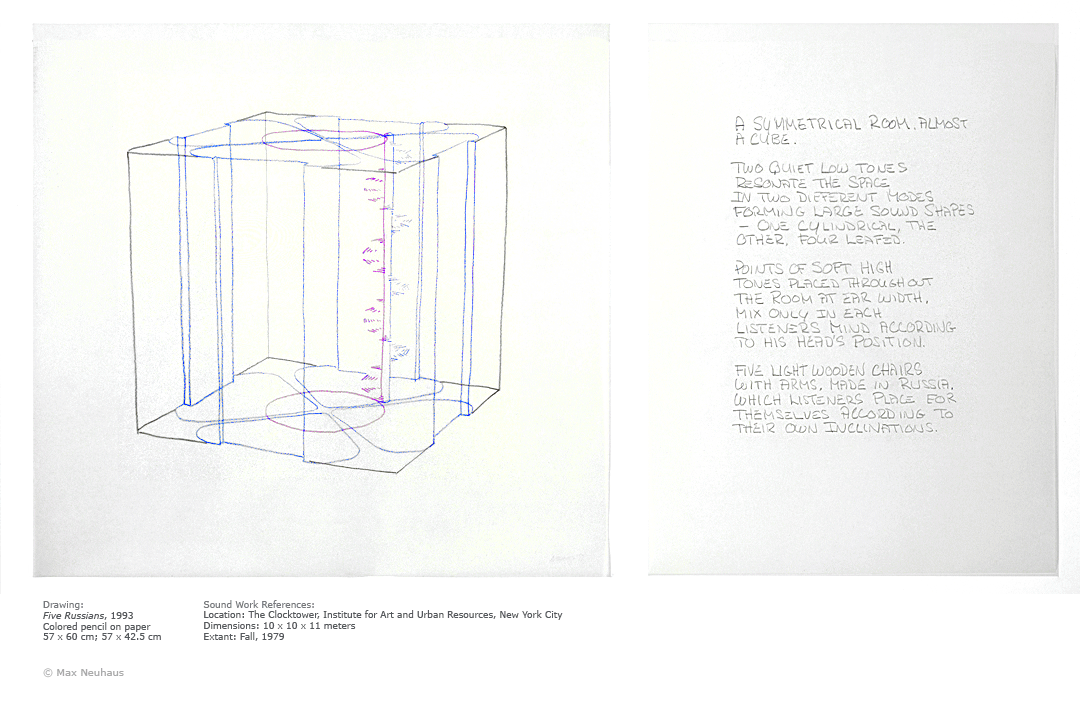 A SYMMETRICAL ROOM, ALMOST
A CUBE.
TWO QUIET LOW TONES
RESONATE THE SPACE
IN TWO DIFFERENT MODES
FORMING LARGE SOUND SHAPES
– ONE CYLINDRICAL, THE
OTHER, FOUR LEAFED.
POINTS OF SOFT HIGH
TONES PLACED THROUGHOUT
THE ROOM AT EAR WIDTH,
MIX ONLY IN EACH
LISTENERS MIND ACCORDING
TO HIS HEAD'S POSITION.
FIVE LIGHT WOODEN CHAIRS
WITH ARMS, MADE IN RUSSIA,
WHICH LISTENERS PLACE FOR
THEMSELVES ACCORDING TO
THEIR OWN INCLINATIONS.
Drawing:
Five Russians, 1993
Colored pencil on paper
57 x 60 cm; 57 x 42.5 cm
Sound Work References:
Location: The Clocktower, Institute for Art and Urban Resources, New York City
Dimensions: 10 x 10 x 11 meters
Extant: Fall, 1979
© Max Neuhaus